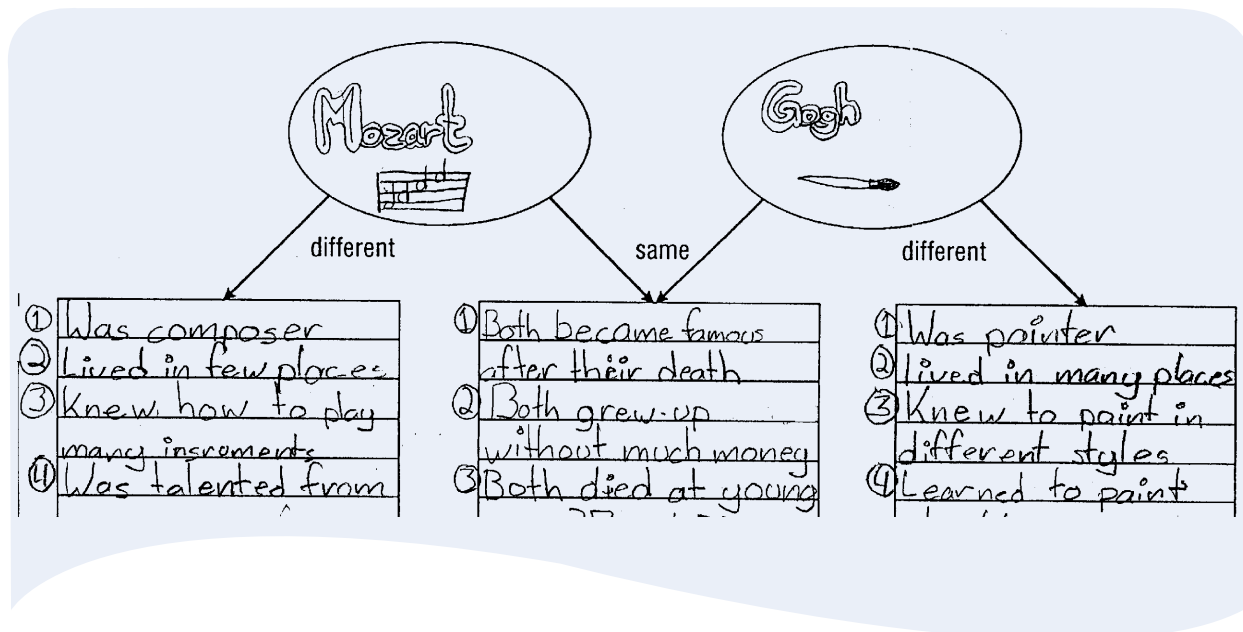 Mozart
Gogh
different
same
different
① Was composer
② Lived in few places
③ Knew how to play
many insroments
④ Was talented from
① Both became famous
after their death
② Both grew-up
without much money
③ Both died at young
① Was painter
② lived in many places
③ Knew to paint in
different styles
④ Learned to paint